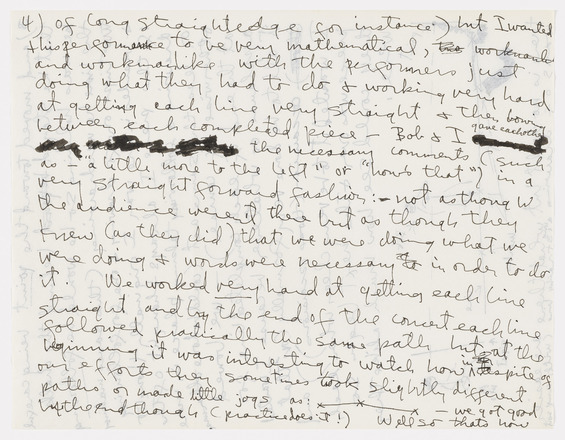 4) of long straightedge for instance) but I wanted
this performance to be very mathematical,
and workmanlike with the performers just
doing what they had to do & working very hard
at getting each line very straight & then bowing
between each completed piece — Bob & I gave each other
the necessary comments (such
as — "a little more to the left" or "how's that") in a
very straight forward fashion: — not as though
the audience weren't there but as though they
knew (as they did) that we were doing what we
were doing & words were necessary in order to do
it. We worked very hard at getting each line
straight and by the end of the concert each line
followed practically the same path but at the
beginning it was interesting to watch how in despite of
our efforts they sometimes took slightly different
paths or made little jogs as: x x x — we got good
in the end though (practice does it!) Well so that's how